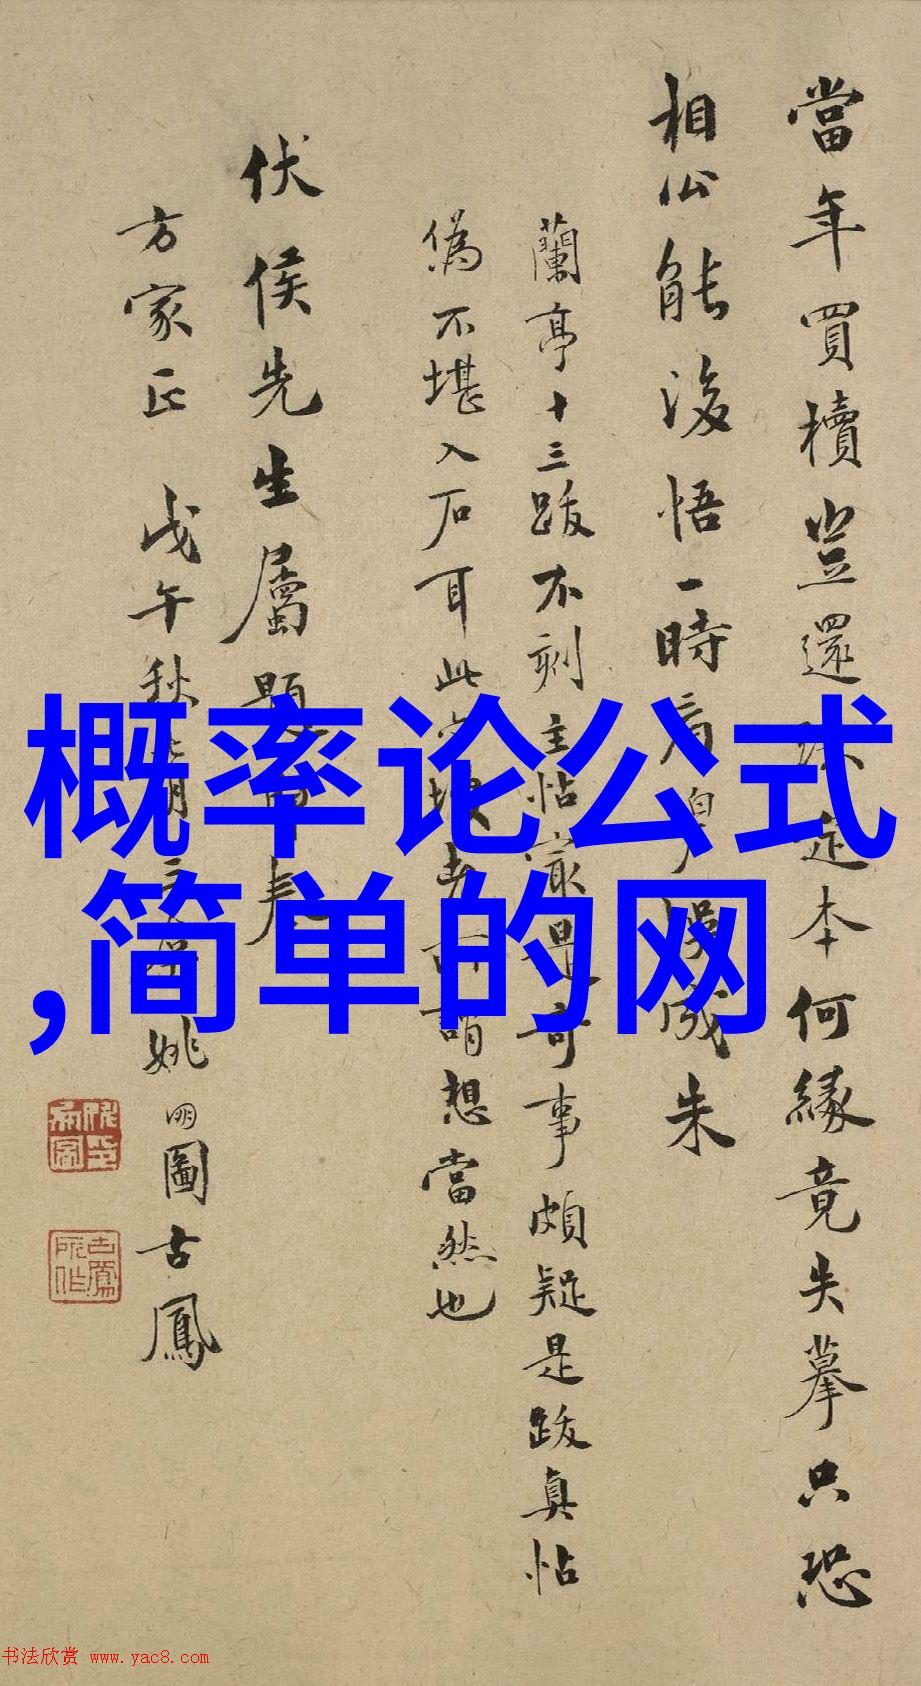 當年買櫝豈還珠定本何緣竟失摹只恐
相公能後悟一時看碧悞成朱
蘭亭十三跋不刻主帖最是奇事頗疑是跋真帖
偽不堪入石耳此
想當然也
伏侯先生屬題
方家正 戊午秋
姚
圖古鳳
概率论公式
,简单的网
书法欣赏 www.yac8.com